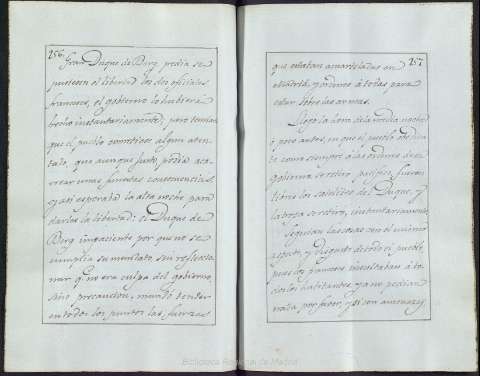 256.
Gran Duque de Berg pedia se
pusiesen en libertad los dos oficiales
franceses, el gobierno lo hubiera
hecho instantaneamente, pero temia
que el pueblo cometiese algun aten-
tado, que aunque justo, podia aca-
rrear unas funestas consecuencias,
y asi esperaba la alta noche para
darles la libertad: el Duque de
Berg impaciente por que no se
cumplia su mandato, sin reflexio-
nar que no era culpa del gobierno,
sino precaucion, mandó tender
en todos los puntos las fuerzas
257
que estaban acuarteladas en
Madrid, y ordenó á todas para
estar sobre las armas.
Llegó la hora de la media noche
ó poco antes, en que el pueblo obedien-
te como siempre á las ordenes de el
gobierno se retiro pacifico, fueron
libres los satelites del Duque, y
la tropa se retiró, instantaneamente.
Seguian las cosas con el mismo
aspecto, y disgusto de todo el pueblo,
pues los franceses insultaban á to-
dos los habitantes y ya no pedian
nada por favor, y si con amenazas
Biblioteca Regional de Madrid